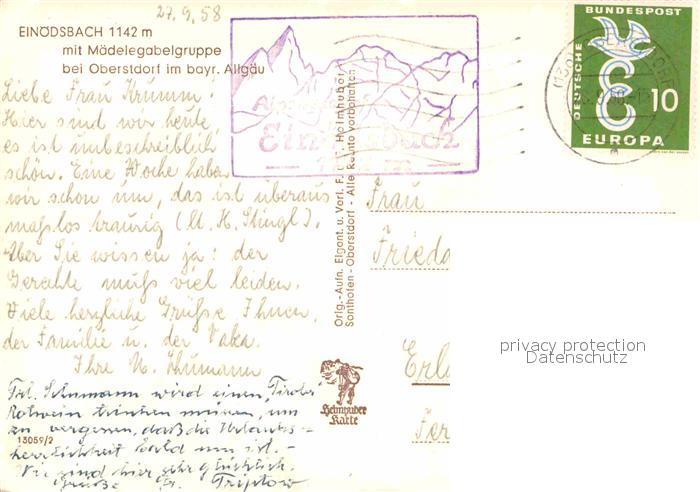 27.9.58
EINÖDSBACH 1142 m
mit Mädelegabelgruppe
bei Oberstdorf im bayr. Allgäu
Liebe Frau Krumm!
Hier sind wir heute,
es ist unbeschreiblich
schön. Eine Woche haben
wir schon um, das ist überaus
maßlos traurig (lt. H. Stingl).
Aber Sie wissen ja: der
Gerechte muß viel leiden.
Viele herzliche Grüße Ihnen,
der Familie u. der
Ihre
Frl. wird einen Tiroler
Rotwein trinken müssen, um
zu vergessen, daß die Urlaubs-
herrlichkeit bald um ist. -
Wir sind hier sehr glücklich.
Grüße Triptow
13059/2
Einödsbach
Orig.-Aufn. Eigent. u. Verl. F. u. F. Heimhuber
Sonthofen-Oberstdorf - Alle Rechte vorbehalten
Heimhuber
Karte
DEUTSCHE BUNDESPOST
10
EUROPA
Frau
Frieda
Erl
privacy protection
Datenschutz